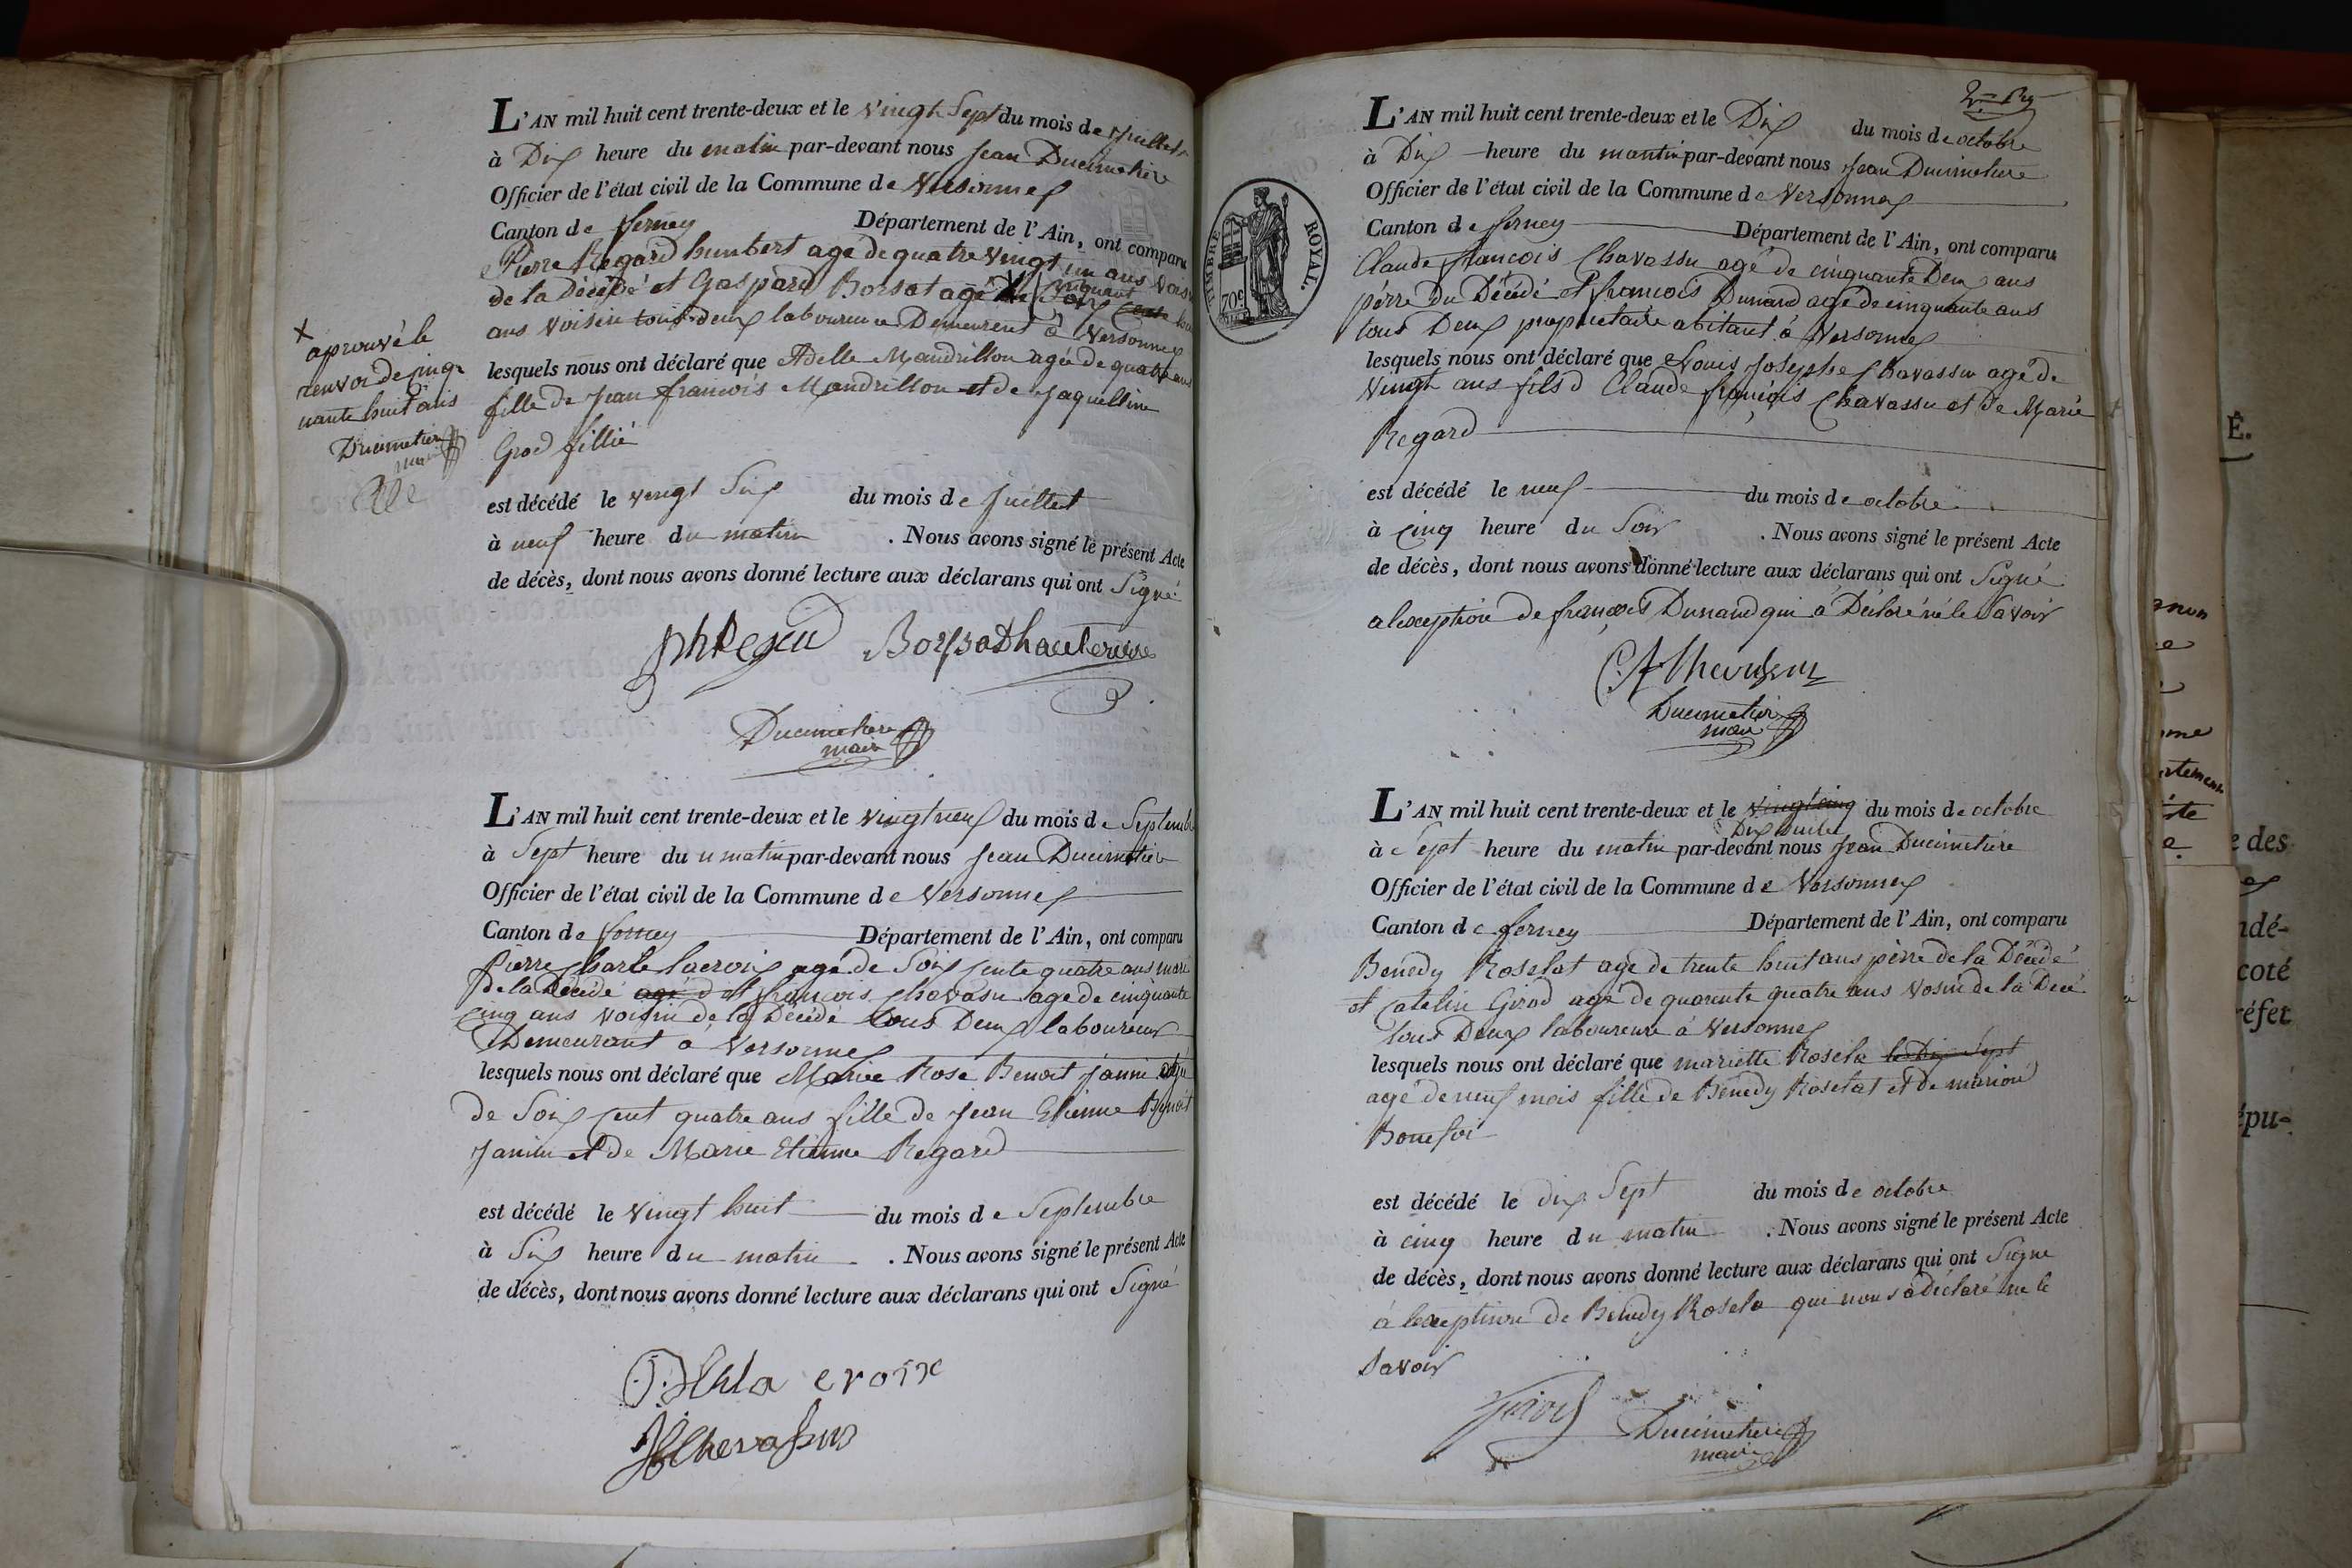 L'AN mil huit cent trente-deux et le vingt Sept du mois de Juillet
à Dix heure du matin par-devant nous Jean Ducimetière
Officier de l'état civil de la Commune de Versonnex
Canton de ferney Département de l'Ain, ont comparu
Pierre Regard humbert age de quatre vingt un ans voisin
de la Décédé et Gaspard Borsat agé de
ans voisin tous deux laboureur Demeurent à Versonnex
lesquels nous ont déclaré que Adelle Mandrillon agée de quatre ans
fille de Jean francois Mandrillon et de Jaquelline
Grod fillié
est décédé le vingt Six du mois de Juillet
à neuf heure du matin . Nous avons signé le présent Acte
de décès, dont nous avons donné lecture aux déclarans qui ont Signé
Borsat Dhauterive
Ducimetiere
maire
X
aprouvé le
renvoi de cinq
uante huit ans
Ducimetiere
maire
L'AN mil huit cent trente-deux et le vingt neuf du mois de Septembre
à Sept heure du matin par-devant nous Jean Ducimetière
Officier de l'état civil de la Commune de Versonnex
Canton de ferney Département de l'Ain, ont comparu
Pierre Charle lacroix agé de Soix sente quatre ans mari
de la Décédé agé d et francois Chavasu age de cinquante
cinq ans voisin de la Décédé tous Deux laboureur
Demeurant à Versonnex
lesquels nous ont déclaré que Marie Rose Benoit Janin agée
de Soix sent quatre ans fille de Jean Etienne Benoit
Janin et de Marie Etienne Regard
est décédé le vingt huit du mois de Septembre
à Six heure du matin . Nous avons signé le présent Acte
de décès, dont nous avons donné lecture aux déclarans qui ont Signé
la croix
Chevassus
TIMBRE ROYAL.
70c
L'AN mil huit cent trente-deux et le Dix du mois de octobre
à Dix heure du mantin par-devant nous Jean Ducimetiere
Officier de l'état civil de la Commune de Versonnex
Canton de ferney Département de l'Ain, ont comparu
Claude francois Chavassu agé de cinquante Deux ans
pérre Du Décédé et francois Dunand agé de cinquante ans
tous Deux propriétaire abitant à Versonnex
lesquels nous ont déclaré que Louis Josephe Chavassu agé de
vingt ans fils d Claude françois Chavassu et de Marie
Regard
est décédé le neuf du mois de octobre
à cinq heure du Soir . Nous avons signé le présent Acte
de décès, dont nous avons donné lecture aux déclarans qui ont Signé
a lexception de françois Dunand qui à Déclaré né le Savoir
Ducimetier
maire
L'AN mil huit cent trente-deux et le vingt cinq du mois de octobre
Dix huite
à Sept heure du matin par-devant nous Jean Ducimetiere
Officier de l'état civil de la Commune de Versonnex
Canton de ferney Département de l'Ain, ont comparu
Benedy Roselat age de trente huit ans pèrre de la Décédé
et Catelin Girod agé de quarente quatre ans vosin de la Décé
tous Deux laboureur à Versonnex
lesquels nous ont déclaré que mariette Rosela le Dix Sept
agé de neuf mois fille de Benedy Roselat et de marion
Bonefoi
est décédé le dix Sept du mois de octobre
à cinq heure du matin . Nous avons signé le présent Acte
de décès, dont nous avons donné lecture aux déclarans qui ont Signe
à lexeption de Benedy Rosela que nous a déclaré ne le
Savoir
Ducimetiere
maire
É.
e des
ndé-
coté
réfet
épu-